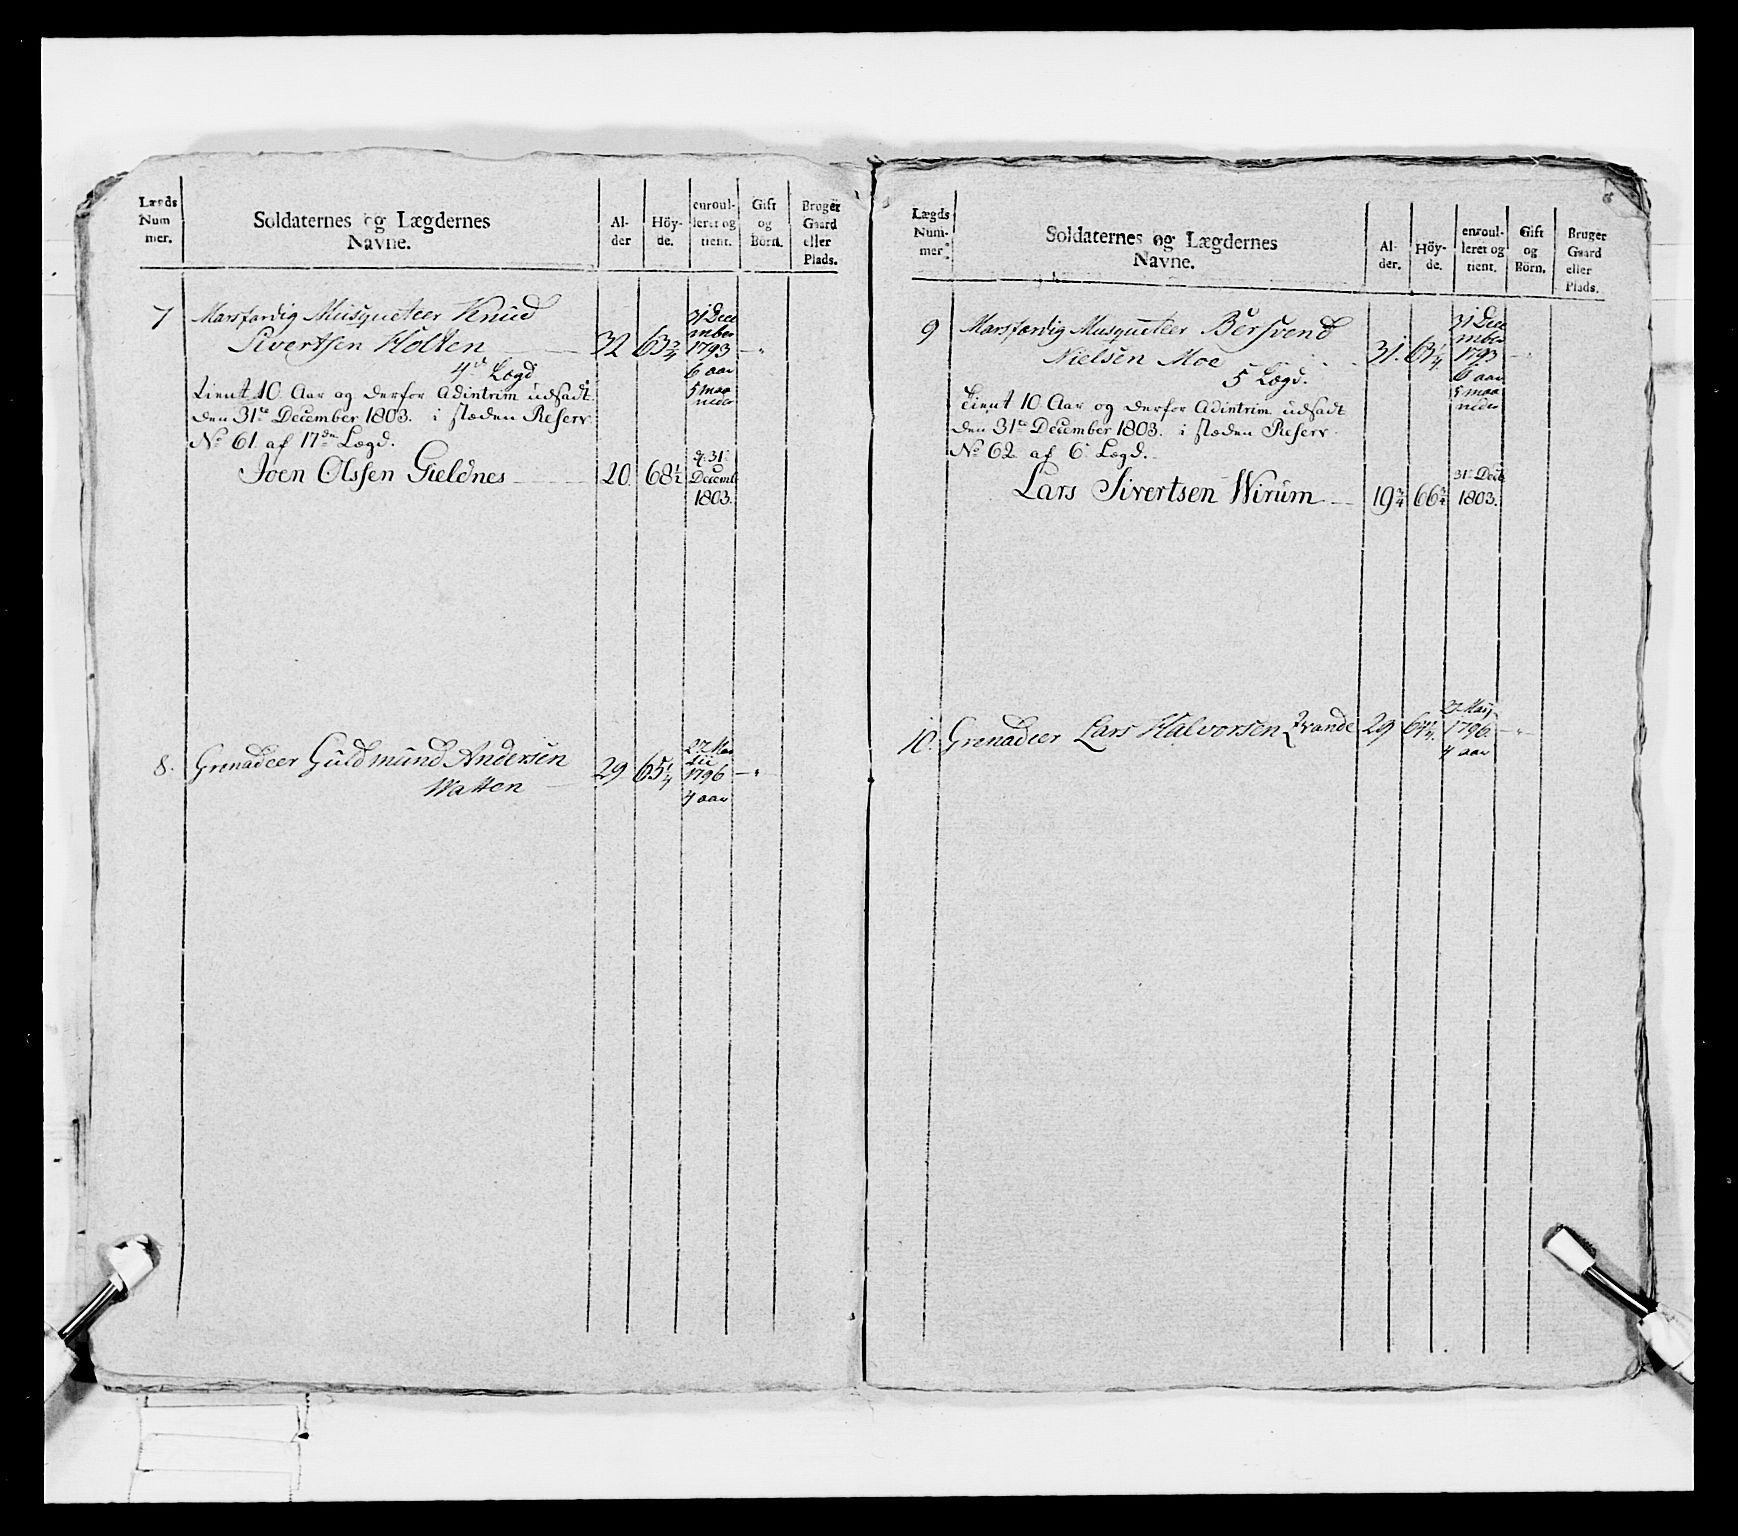 Lægds Num mer.
Soldaternes og Lægdernes Navne.
Al- der
Höy- de.
enroul- leret og tient.
Gift og Börn.
Bruger Gaard eller Plads.
7 Marsfærdig Musqueteer Knud
Sivertsen Holten 32 63 3/4
31 Dece
mber
1793
6 aar
5 maa
neder
4de Lægd
tient 10 Aar og derfor Adintrim udsadt
den 31te December 1803. i stæden Reserv
No 61. af 17de Lægd.
Joen Olssen Gieldnes 20. 68 1/2
d. 31
Decemb
1803.
8. Grenadeer Guldmund Andersen
Watten 29 65 1/4
27 Mar
tii
1796
4 aar
Lægds Num- mer
Soldaternes og Lægdernes Navne.
Al- der.
Höy- de.
enroul- leret og tient.
Gift og Börn.
Bruger Gaard eller Plads.
9 Marsfærdig Musqueteer Bersvend
Nielsen Moe 31. 63 1/4
31 Dece
mber
1793
6 aar
5 maa
neder
5 Lægd.
tient 10 Aar og derfor Adintrim udsadt
den 31te December 1803. i stæden Reserv
No 62 af 6 Lægd.
Lars Sivertsen Wirum 19 3/4 66 3/4
31 Decb
1803.
10. Grenadeer Lars Halvorsen 29
1796
4 aar